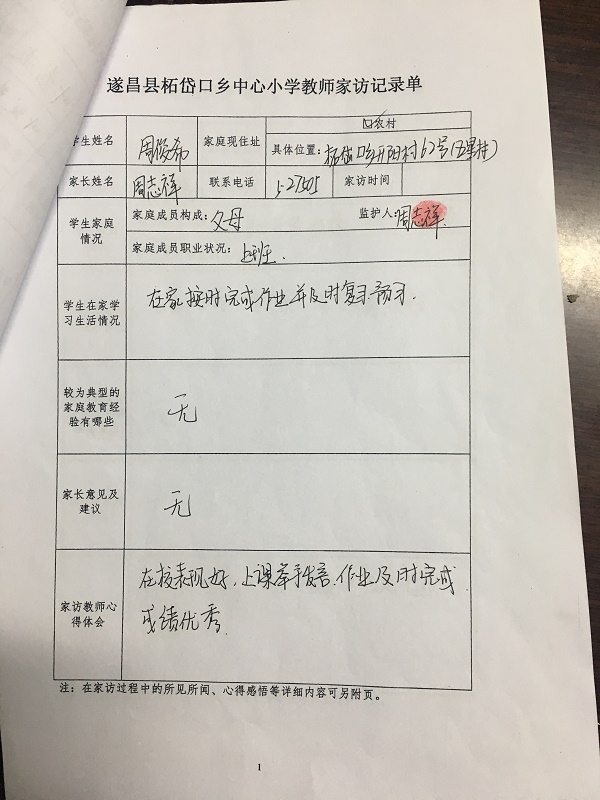 遂昌县柘岱口乡中心小学教师家访记录单
学生姓名 周俊希 家庭现住址 农村
具体位置: 柘岱口乡 村62号(五星村)
家长姓名 周志祥 联系电话 27505 家访时间
学生家庭
情况
家庭成员构成: 父母 监护人: 周志祥
家庭成员职业状况: 上班.
学生在家学
习生活情况
在家按时完成作业并及时复习预习.
较为典型的
家庭教育经
验有哪些
无
家长意见及
建议
无
家访教师心
得体会
在校表现好,上课举手发言.作业及时完成
成绩优秀.
注: 在家访过程中的所见所闻、心得感悟等详细内容可另附页。
1